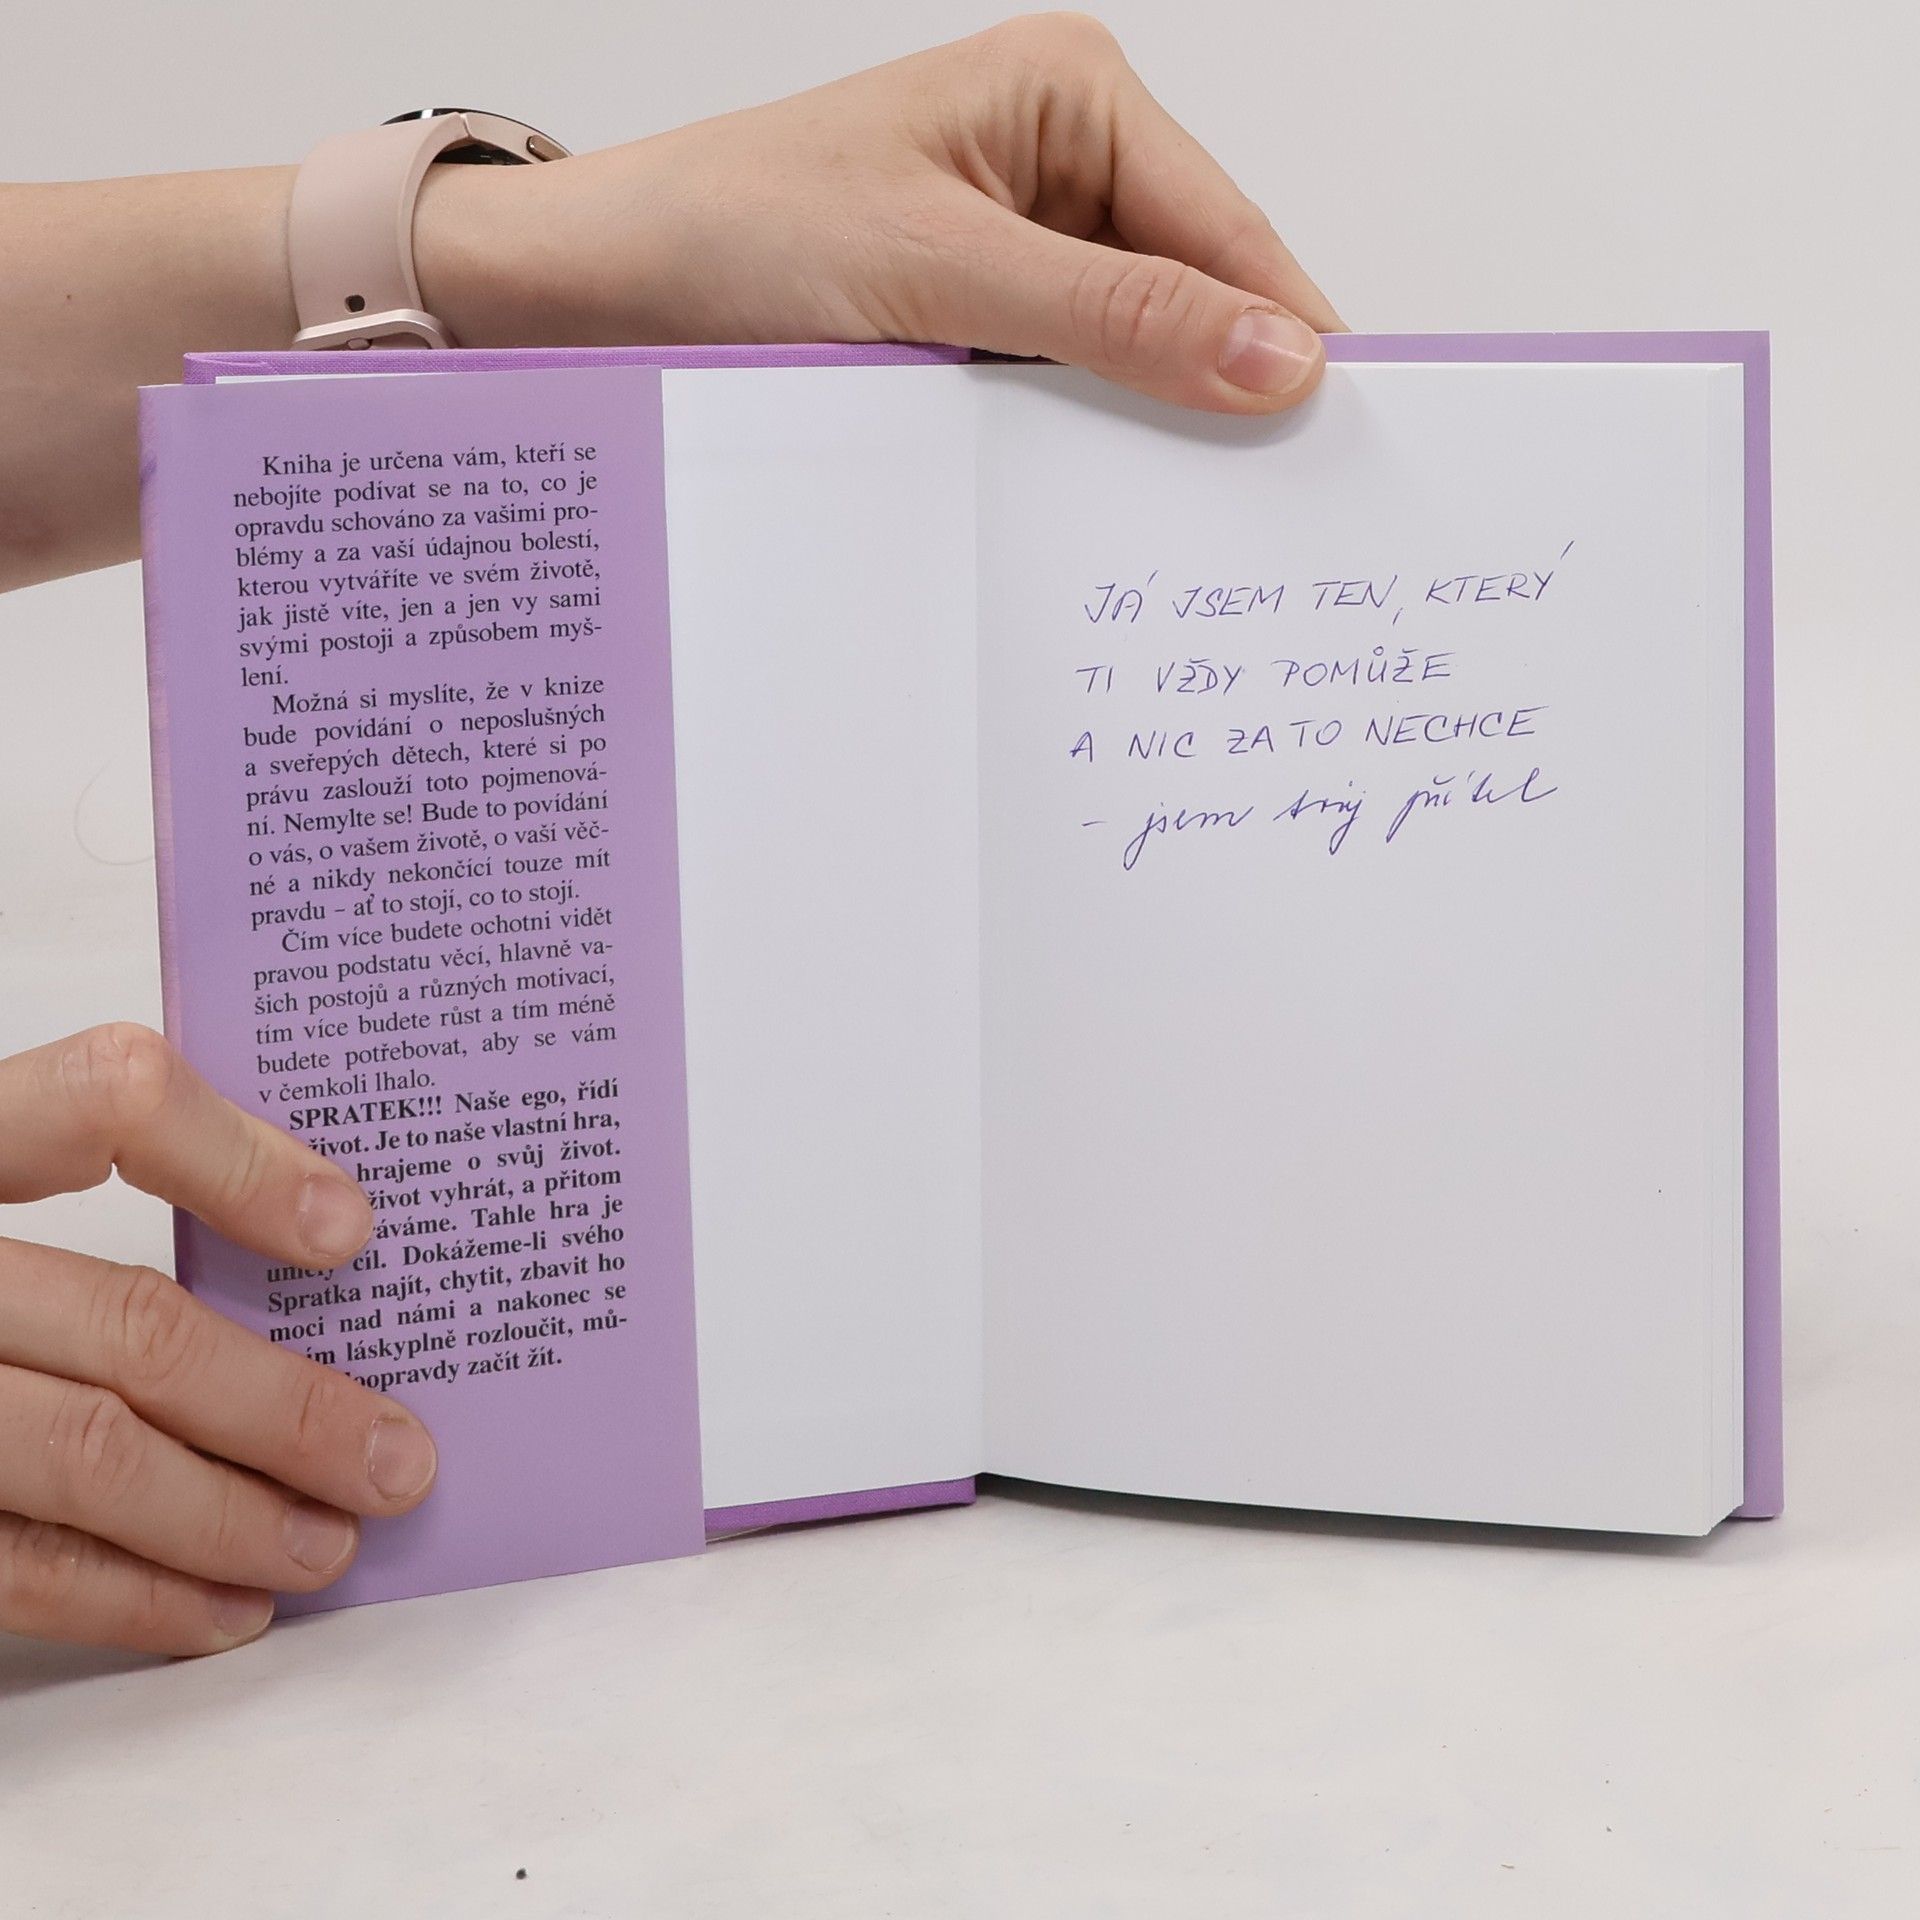 Kniha je určena vám, kteří se
nebojíte podívat se na to, co je
opravdu schováno za vašimi pro-
blémy a za vaší údajnou bolestí,
kterou vytváříte ve svém životě,
jak jistě víte, jen a jen vy sami
svými postoji a způsobem myš-
lení.
Možná si myslíte, že v knize
bude povídání o neposlušných
a sveřepých dětech, které si po
právu zaslouží toto pojmenová-
ní. Nemylte se! Bude to povídání
o vás, o vašem životě, o vaší věč-
né a nikdy nekončící touze mít
pravdu – ať to stojí, co to stojí.
Čím více budete ochotni vidět
pravou podstatu věcí, hlavně va-
šich postojů a různých motivací,
tím více budete růst a tím méně
budete potřebovat, aby se vám
v čemkoli lhalo.
SPRATEK!!! Naše ego, řídí
život. Je to naše vlastní hra,
hrajeme o svůj život.
život vyhrát, a přitom
ráváme. Tahle hra je
umělý cíl. Dokážeme-li svého
Spratka najít, chytit, zbavit ho
moci nad námi a nakonec se
láskyplně rozloučit, mů-
doopravdy začít žít.
JÁ JSEM TEN, KTERÝ
TI VŽDY POMŮŽE
A NIC ZA TO NECHCE
– jsem tvůj přítel